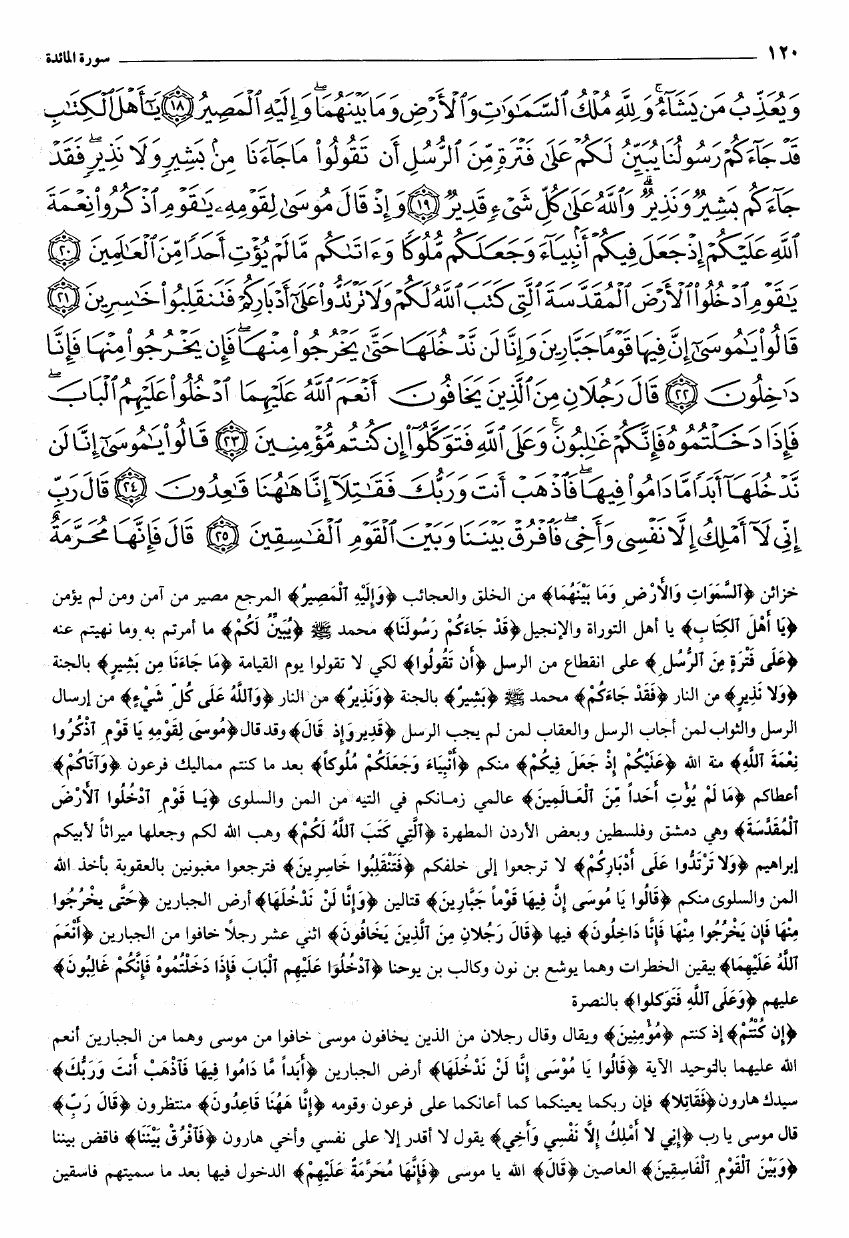 ١٢٠ سورة المائدة
وَيُعَذِّبُ مَن يَشَآءُ ۚ وَلِلَّهِ مُلْكُ ٱلسَّمَٰوَٰتِ وَٱلْأَرْضِ وَمَا بَيْنَهُمَا ۖ وَإِلَيْهِ ٱلْمَصِيرُ ١٨ يَٰٓأَهْلَ ٱلْكِتَٰبِ
قَدْ جَآءَكُمْ رَسُولُنَا يُبَيِّنُ لَكُمْ عَلَىٰ فَتْرَةٍ مِّنَ ٱلرُّسُلِ أَن تَقُولُوا۟ مَا جَآءَنَا مِنۢ بَشِيرٍ وَلَا نَذِيرٍ ۖ فَقَدْ
جَآءَكُم بَشِيرٌ وَنَذِيرٌ ۗ وَٱللَّهُ عَلَىٰ كُلِّ شَىْءٍ قَدِيرٌ ١٩ وَإِذْ قَالَ مُوسَىٰ لِقَوْمِهِۦ يَٰقَوْمِ ٱذْكُرُوا۟ نِعْمَةَ
ٱللَّهِ عَلَيْكُمْ إِذْ جَعَلَ فِيكُمْ أَنۢبِيَآءَ وَجَعَلَكُم مُّلُوكًا وَءَاتَىٰكُم مَّا لَمْ يُؤْتِ أَحَدًا مِّنَ ٱلْعَٰلَمِينَ ٢٠
يَٰقَوْمِ ٱدْخُلُوا۟ ٱلْأَرْضَ ٱلْمُقَدَّسَةَ ٱلَّتِى كَتَبَ ٱللَّهُ لَكُمْ وَلَا تَرْتَدُّوا۟ عَلَىٰٓ أَدْبَارِكُمْ فَتَنقَلِبُوا۟ خَٰسِرِينَ ٢١
قَالُوا۟ يَٰمُوسَىٰٓ إِنَّ فِيهَا قَوْمًا جَبَّارِينَ وَإِنَّا لَن نَّدْخُلَهَا حَتَّىٰ يَخْرُجُوا۟ مِنْهَا ۖ فَإِن يَخْرُجُوا۟ مِنْهَا فَإِنَّا
دَٰخِلُونَ ٢٢ قَالَ رَجُلَانِ مِنَ ٱلَّذِينَ يَخَافُونَ أَنْعَمَ ٱللَّهُ عَلَيْهِمَا ٱدْخُلُوا۟ عَلَيْهِمُ ٱلْبَابَ ۖ
فَإِذَا دَخَلْتُمُوهُ فَإِنَّكُمْ غَٰلِبُونَ ۚ وَعَلَى ٱللَّهِ فَتَوَكَّلُوٓا۟ إِن كُنتُم مُّؤْمِنِينَ ٢٣ قَالُوا۟ يَٰمُوسَىٰٓ إِنَّا لَن
نَّدْخُلَهَآ أَبَدًا مَّا دَامُوا۟ فِيهَا ۖ فَٱذْهَبْ أَنتَ وَرَبُّكَ فَقَٰتِلَآ إِنَّا هَٰهُنَا قَٰعِدُونَ ٢٤ قَالَ رَبِّ
إِنِّى لَآ أَمْلِكُ إِلَّا نَفْسِى وَأَخِى ۖ فَٱفْرُقْ بَيْنَنَا وَبَيْنَ ٱلْقَوْمِ ٱلْفَٰسِقِينَ ٢٥ قَالَ فَإِنَّهَا مُحَرَّمَةٌ
خزائن ﴿ٱلسَّمَوَاتِ وَالأَرْضِ وَمَا بَيْنَهُمَا﴾ من الخلق والعجائب ﴿وَإِلَيْهِ ٱلْمَصِيرُ﴾ المرجع مصير من آمن ومن لم يؤمن
﴿يَا أَهْلَ ٱلْكِتَابِ﴾ يا أهل التوراة والإنجيل ﴿قَدْ جَاءَكُمْ رَسُولُنَا﴾ محمد ﷺ ﴿يُبَيِّنُ لَكُمْ﴾ ما أمرتم به وما نهيتم عنه
﴿عَلَى فَتْرَةٍ مِنَ ٱلرُّسُلِ﴾ على انقطاع من الرسل ﴿أَن تَقُولُوا﴾ لكي لا تقولوا يوم القيامة ﴿مَا جَاءَنَا مِن بَشِيرٍ﴾ بالجنة
﴿وَلا نَذِيرٍ﴾ من النار ﴿فَقَدْ جَاءَكُمْ﴾ محمد ﷺ ﴿بَشِيرٌ﴾ بالجنة ﴿وَنَذِيرٌ﴾ من النار ﴿وَٱللَّهُ عَلَى كُلِّ شَيْءٍ﴾ من إرسال
الرسل والثواب لمن أجاب الرسل والعقاب لمن لم يجب الرسل ﴿قَدِير وَإِذ قَالَ﴾ وقد قال ﴿مُوسَى لِقَوْمِهِ يَا قَوْمِ ٱذْكُرُوا
نِعْمَةَ ٱللَّهِ﴾ منة الله ﴿عَلَيْكُمْ إِذْ جَعَلَ فِيكُمْ﴾ منكم ﴿أَنْبِيَاءَ وَجَعَلَكُمْ مُلُوكاً﴾ بعد ما كنتم مماليك فرعون ﴿وَآتَاكُمْ﴾
أعطاكم ﴿مَا لَمْ يُؤْتِ أَحَداً مِّنَ ٱلْعَالَمِينَ﴾ عالمي زمانكم في التيه من المن والسلوى ﴿يَا قَوْمِ ٱدْخُلُوا ٱلأَرْضَ
ٱلْمُقَدَّسَةَ﴾ وهي دمشق وفلسطين وبعض الأردن المطهرة ﴿ٱلَّتِي كَتَبَ ٱللَّهُ لَكُمْ﴾ وهب الله لكم وجعلها ميراثاً لأبيكم
إبراهيم ﴿وَلا تَرْتَدُّوا عَلَى أَدْبَارِكُمْ﴾ لا ترجعوا إلى خلفكم ﴿فَتَنْقَلِبُوا خَاسِرِينَ﴾ فترجعوا مغبونين بالعقوبة بأخذ الله
المن والسلوى منكم ﴿قَالُوا يَا مُوسَى إِنَّ فِيهَا قَوْماً جَبَّارِينَ﴾ قتالين ﴿وَإِنَّا لَنْ نَدْخُلَهَا﴾ أرض الجبارين ﴿حَتَّى يخْرُجُوا
مِنْهَا فَإِن يَخْرُجُوا مِنْهَا فَإِنَّا دَاخِلُونَ﴾ فيها ﴿قَالَ رَجُلانِ مِنَ ٱلَّذِينَ يَخَافُونَ﴾ اثني عشر رجلاً خافوا من الجبارين ﴿أَنْعَمَ
ٱللَّهُ عَلَيْهِمَا﴾ بيقين الخطرات وهما يوشع بن نون وكالب بن يوحنا ﴿ٱدْخُلُوا عَلَيْهِم ٱلْبَابَ فَإِذَا دَخَلْتُمُوهُ فَإِنَّكُمْ غَالِبُونَ﴾
عليهم ﴿وَعَلَى ٱللَّهِ فَتَوَكلوا﴾ بالنصرة
﴿إِن كُنْتُمْ﴾ إذ كنتم ﴿مُؤْمِنِينَ﴾ ويقال وقال رجلان من الذين يخافون موسى خافوا من موسى وهما من الجبارين أنعم
الله عليهما بالتوحيد الآية ﴿قَالُوا يَا مُوْسَى إِنَّا لَنْ نَدْخُلَهَا﴾ أرض الجبارين ﴿أَبَداً مَّا دَامُوا فِيهَا فَٱذْهَبْ أَنتَ وَرَبُّكَ﴾
سيدك هارون ﴿فَقَاتِلا﴾ فإن ربكما يعينكما كما أعانكما على فرعون وقومه ﴿إِنَّا هَهُنَا قَاعِدُونَ﴾ منتظرون ﴿قَالَ رَبِّ﴾
قال موسى يا رب ﴿إِنِي لا أَمْلِكُ إِلَّا نَفْسِي وَأَخِي﴾ يقول لا أقدر إلا على نفسي وأخي هارون ﴿فَٱفْرُقْ بَيْنَنَا﴾ فاقض بيننا
﴿وَبَيْنَ ٱلْقَوْمِ ٱلْفَاسِقِينَ﴾ العاصين ﴿قَالَ﴾ الله يا موسى ﴿فَإِنَّهَا مُحَرَّمَةً عَلَيْهِمْ﴾ الدخول فيها بعد ما سميتهم فاسقين